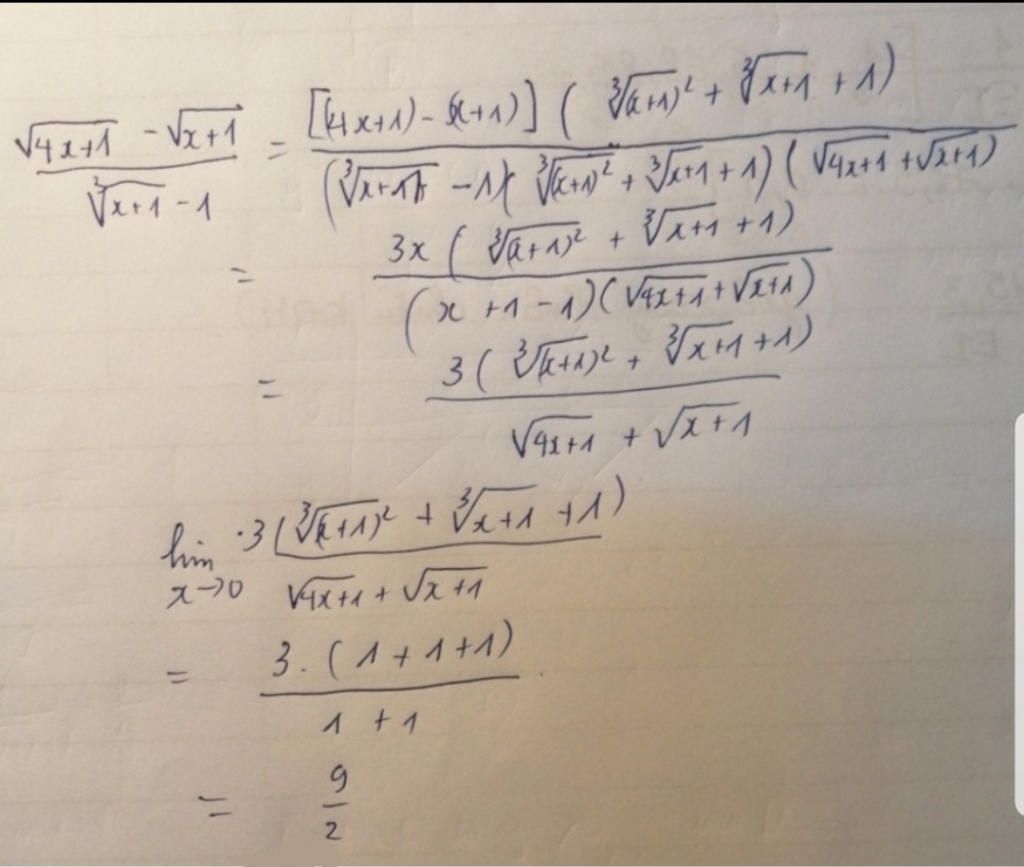 (√(4x+1) - √(x+1)) / (∛(x+1) - 1) = ([(4x+1) - (x+1)] (∛(x+1)² + ∛(x+1) + 1)) / ((∛(x+1) - 1)(∛(x+1)² + ∛(x+1) + 1)(√(4x+1) + √(x+1)))
= (3x (∛(x+1)² + ∛(x+1) + 1)) / ((x + 1 - 1)(√(4x+1) + √(x+1)))
= (3 (∛(x+1)² + ∛(x+1) + 1)) / (√(4x+1) + √(x+1))
lim x→0 (3 (∛(x+1)² + ∛(x+1) + 1)) / (√(4x+1) + √(x+1))
= (3 . (1 + 1 + 1)) / (1 + 1)
= 9/2